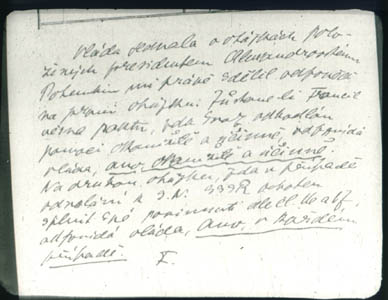 Vláda jednala o otázkách polo-
žených presidentem Alexandrovskému.
Potemkin mi právě sdělil odpovědi
na první otázku: Zůstane-li Francie
věrna paktu, zda Svaz odhodlán
pomoci okamžitě a účinně, odpovídá
vláda, ano, okamžitě a účinně.
Na druhou otázku, zda v případě
odvolání k S.N. SSSR ochoten
splnit své povinnosti dle čl. 16 a 17,
odpovídá vláda, ano, v každém
případě. F.